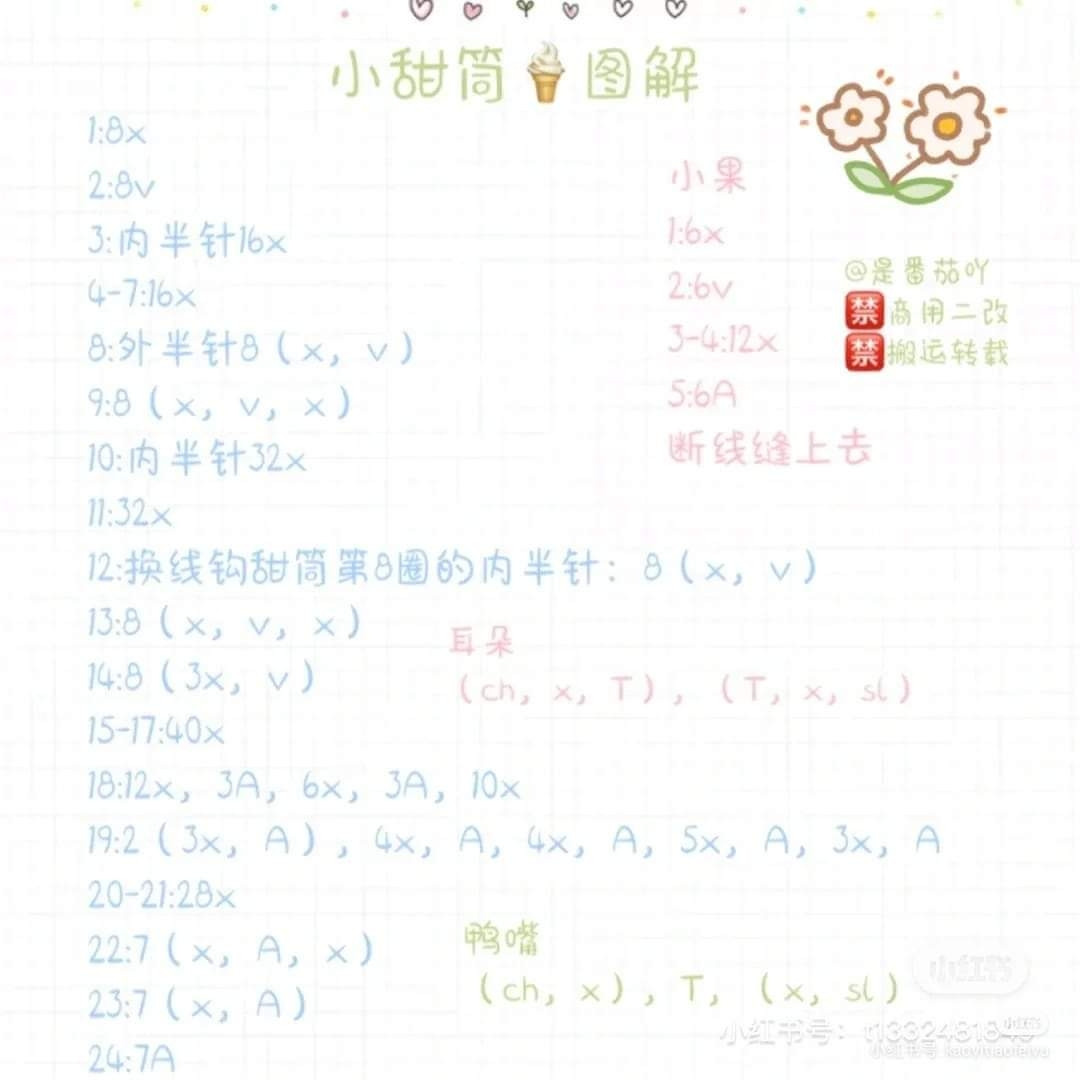 小甜筒🍦图解
1:8x
2:8v
3:内半针16x
4-7:16x
8:外半针8（x，v）
9:8（x，v，x）
10:内半针32x
11:32x
12:换线钩甜筒第8圈的内半针：8（x，v）
13:8（x，v，x）
14:8（3x，v）
15-17:40x
18:12x，3A，6x，3A，10x
19:2（3x，A），4x，A，4x，A，5x，A，3x，A
20-21:28x
22:7（x，A，x）
23:7（x，A）
24:7A
小果
1:6x
2:6v
3-4:12x
5:6A
断线缝上去
@是番茄吖
🈲商用二改
🈲搬运转载
耳朵
（ch，x，T），（T，x，sl）
鸭嘴
（ch，x），T，（x，sl）
小红书
小红书号：
小红书
小红书号